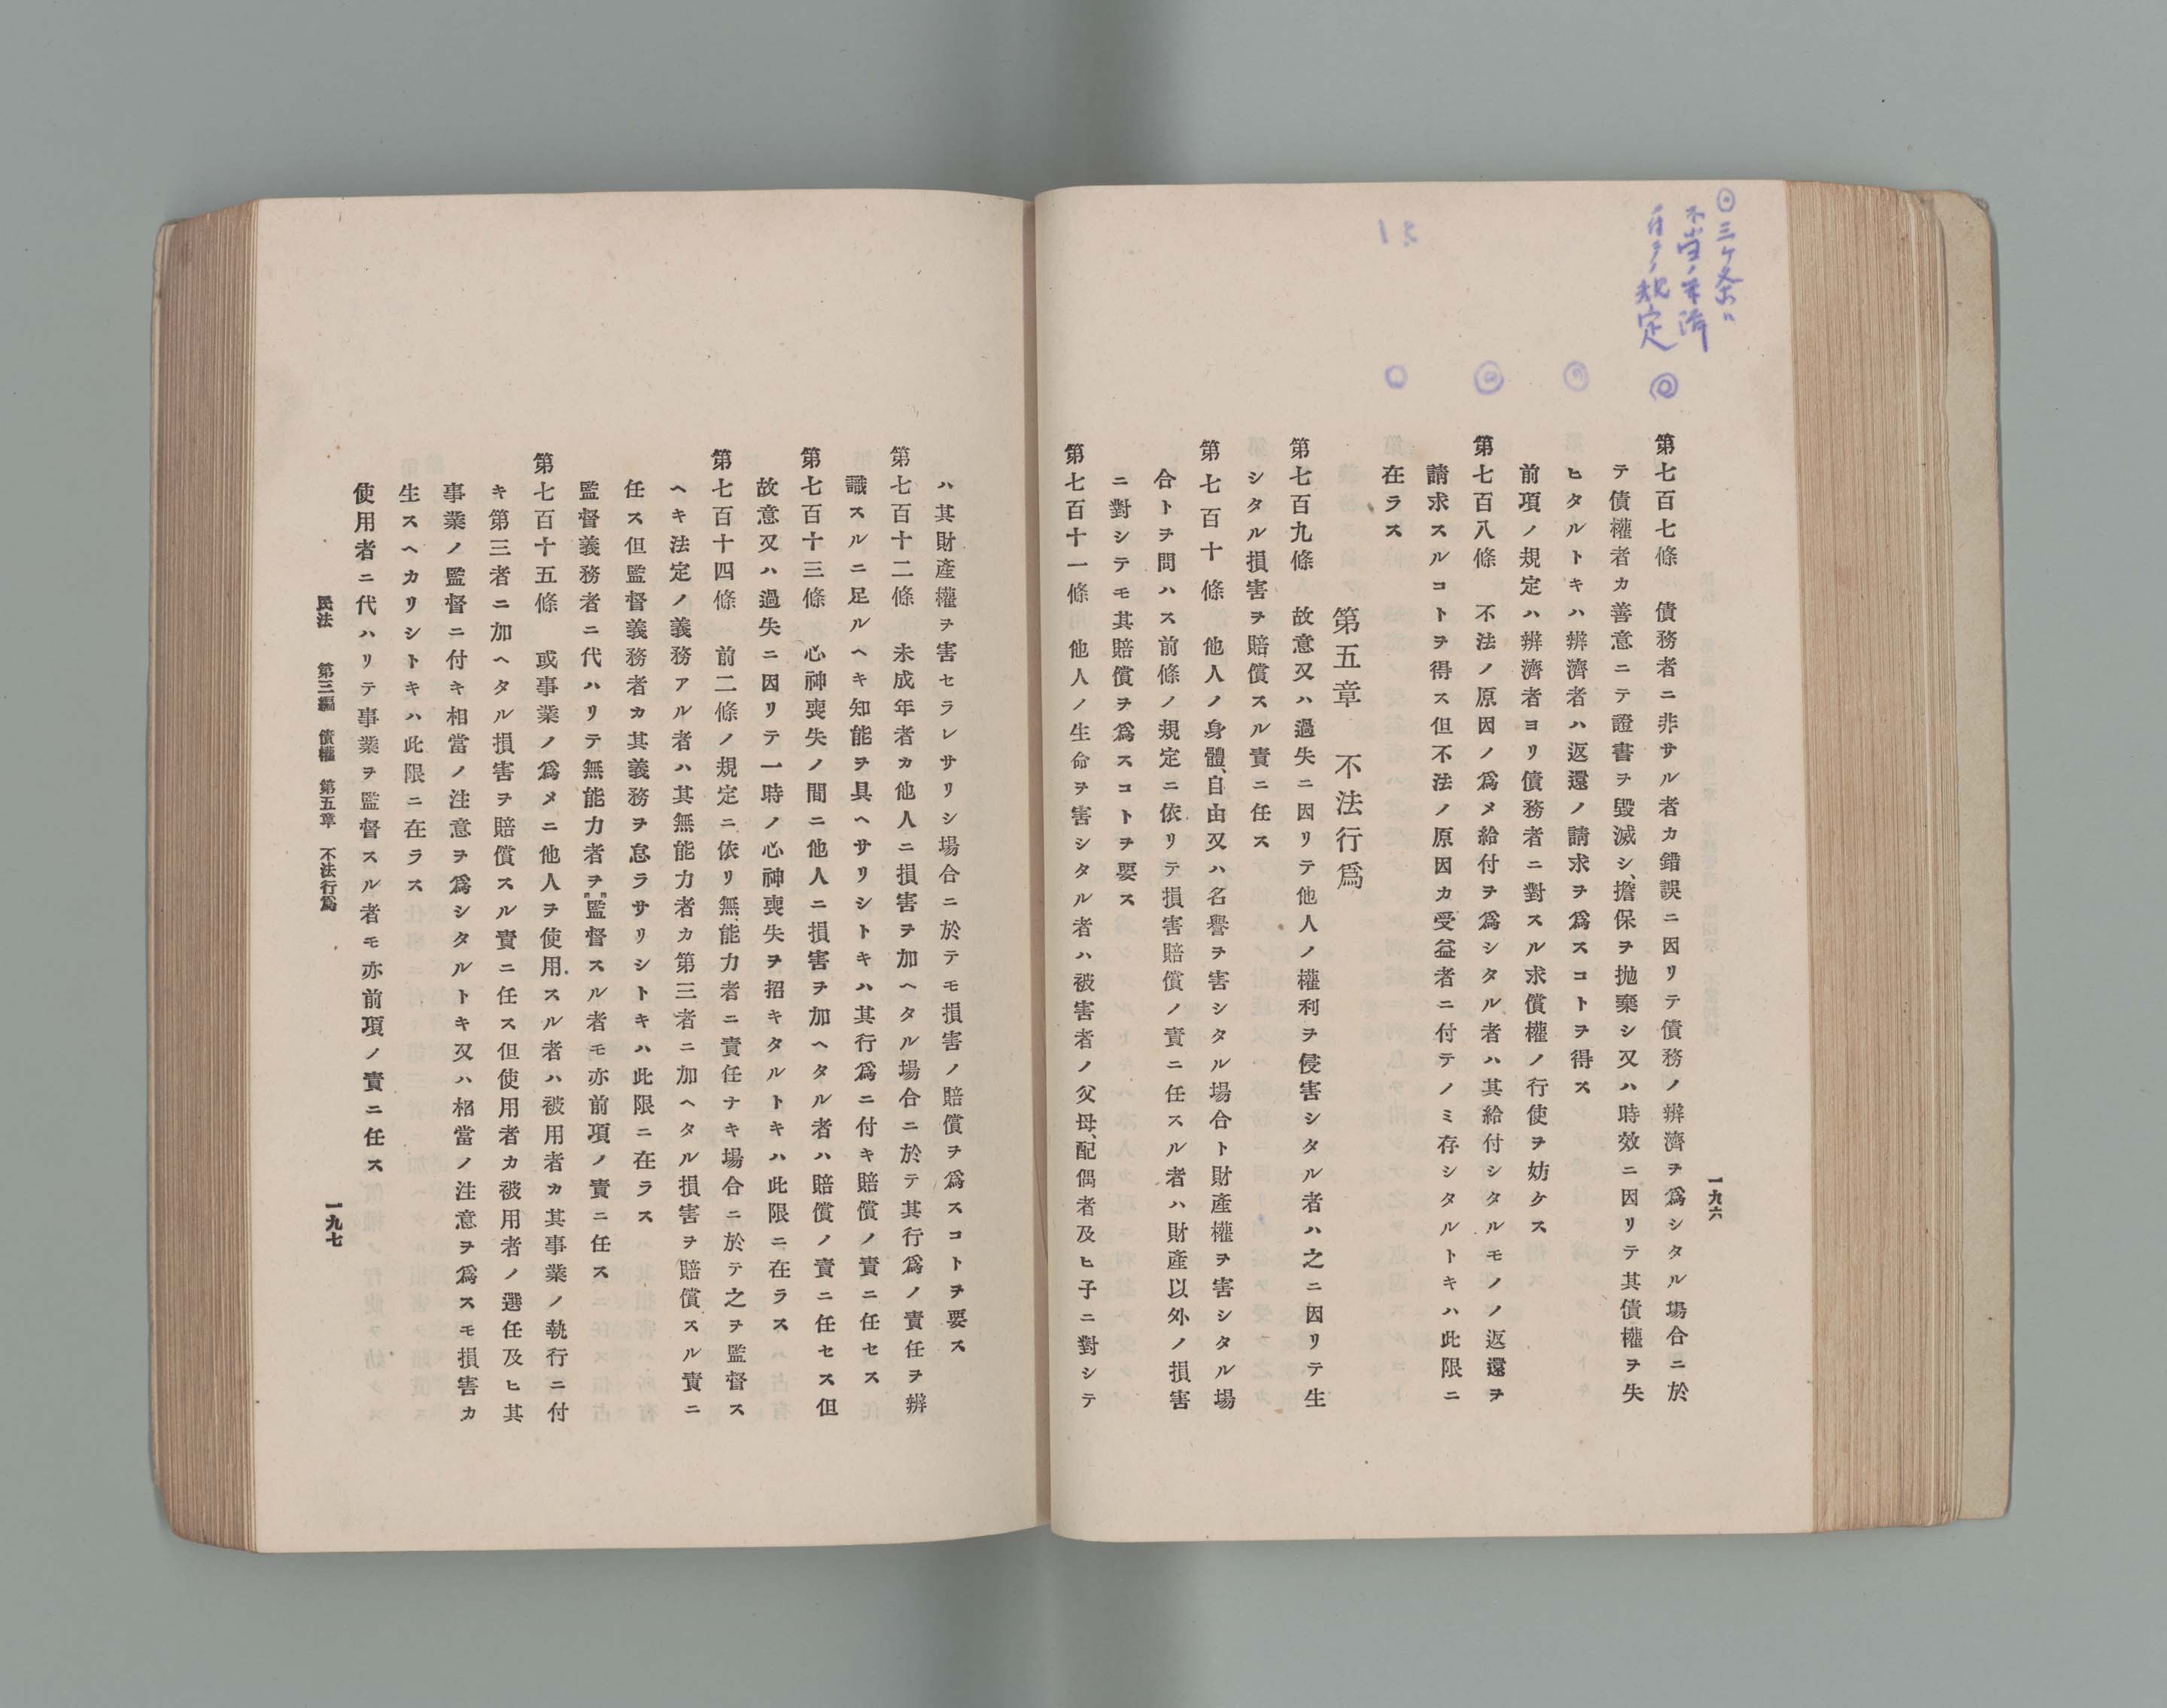 ◎三ケ条ハ
不当ノ弁済
ノ規定
一九六
第七百七條　債務者ニ非サル者カ錯誤ニ因リテ債務ノ辨濟ヲ爲シタル場合ニ於
テ債權者カ善意ニテ證書ヲ毀滅シ、擔保ヲ抛棄シ又ハ時效ニ因リテ其債權ヲ失
ヒタルトキハ辨濟者ハ返還ノ請求ヲ爲スコトヲ得ス
前項ノ規定ハ辨濟者ヨリ債務者ニ對スル求償權ノ行使ヲ妨ケス
第七百八條　不法ノ原因ノ爲メ給付ヲ爲シタル者ハ其給付シタルモノノ返還ヲ
請求スルコトヲ得ス但不法ノ原因カ受益者ニ付テノミ存シタルトキハ此限ニ
在ラス
第五章　不法行爲
第七百九條　故意又ハ過失ニ因リテ他人ノ權利ヲ侵害シタル者ハ之ニ因リテ生
シタル損害ヲ賠償スル責ニ任ス
第七百十條　他人ノ身體、自由又ハ名譽ヲ害シタル場合ト財產權ヲ害シタル場
合トヲ問ハス前條ノ規定ニ依リテ損害賠償ノ責ニ任スル者ハ財產以外ノ損害
ニ對シテモ其賠償ヲ爲スコトヲ要ス
第七百十一條　他人ノ生命ヲ害シタル者ハ被害者ノ父母、配偶者及ヒ子ニ對シテ
ハ其財產權ヲ害セラレサリシ場合ニ於テモ損害ノ賠償ヲ爲スコトヲ要ス
第七百十二條　未成年者カ他人ニ損害ヲ加ヘタル場合ニ於テ其行爲ノ責任ヲ辨
識スルニ足ルヘキ知能ヲ具ヘサリシトキハ其行爲ニ付キ賠償ノ責ニ任セス
第七百十三條　心神喪失ノ間ニ他人ニ損害ヲ加ヘタル者ハ賠償ノ責ニ任セス但
故意又ハ過失ニ因リテ一時ノ心神喪失ヲ招キタルトキハ此限ニ在ラス
第七百十四條　前二條ノ規定ニ依リ無能力者ニ責任ナキ場合ニ於テ之ヲ監督ス
ヘキ法定ノ義務アル者ハ其無能力者カ第三者ニ加ヘタル損害ヲ賠償スル責ニ
任ス但監督義務者カ其義務ヲ怠ラサリシトキハ此限ニ在ラス
監督義務者ニ代ハリテ無能力者ヲ監督スル者モ亦前項ノ責ニ任ス
第七百十五條　或事業ノ爲メニ他人ヲ使用スル者ハ被用者カ其事業ノ執行ニ付
キ第三者ニ加ヘタル損害ヲ賠償スル責ニ任ス但使用者カ被用者ノ選任及ヒ其
事業ノ監督ニ付キ相當ノ注意ヲ爲シタルトキ又ハ相當ノ注意ヲ爲スモ損害カ
生スヘカリシトキハ此限ニ在ラス
使用者ニ代ハリテ事業ヲ監督スル者モ亦前項ノ責ニ任ス
民法　第三編　債權　第五章　不法行爲
一九七